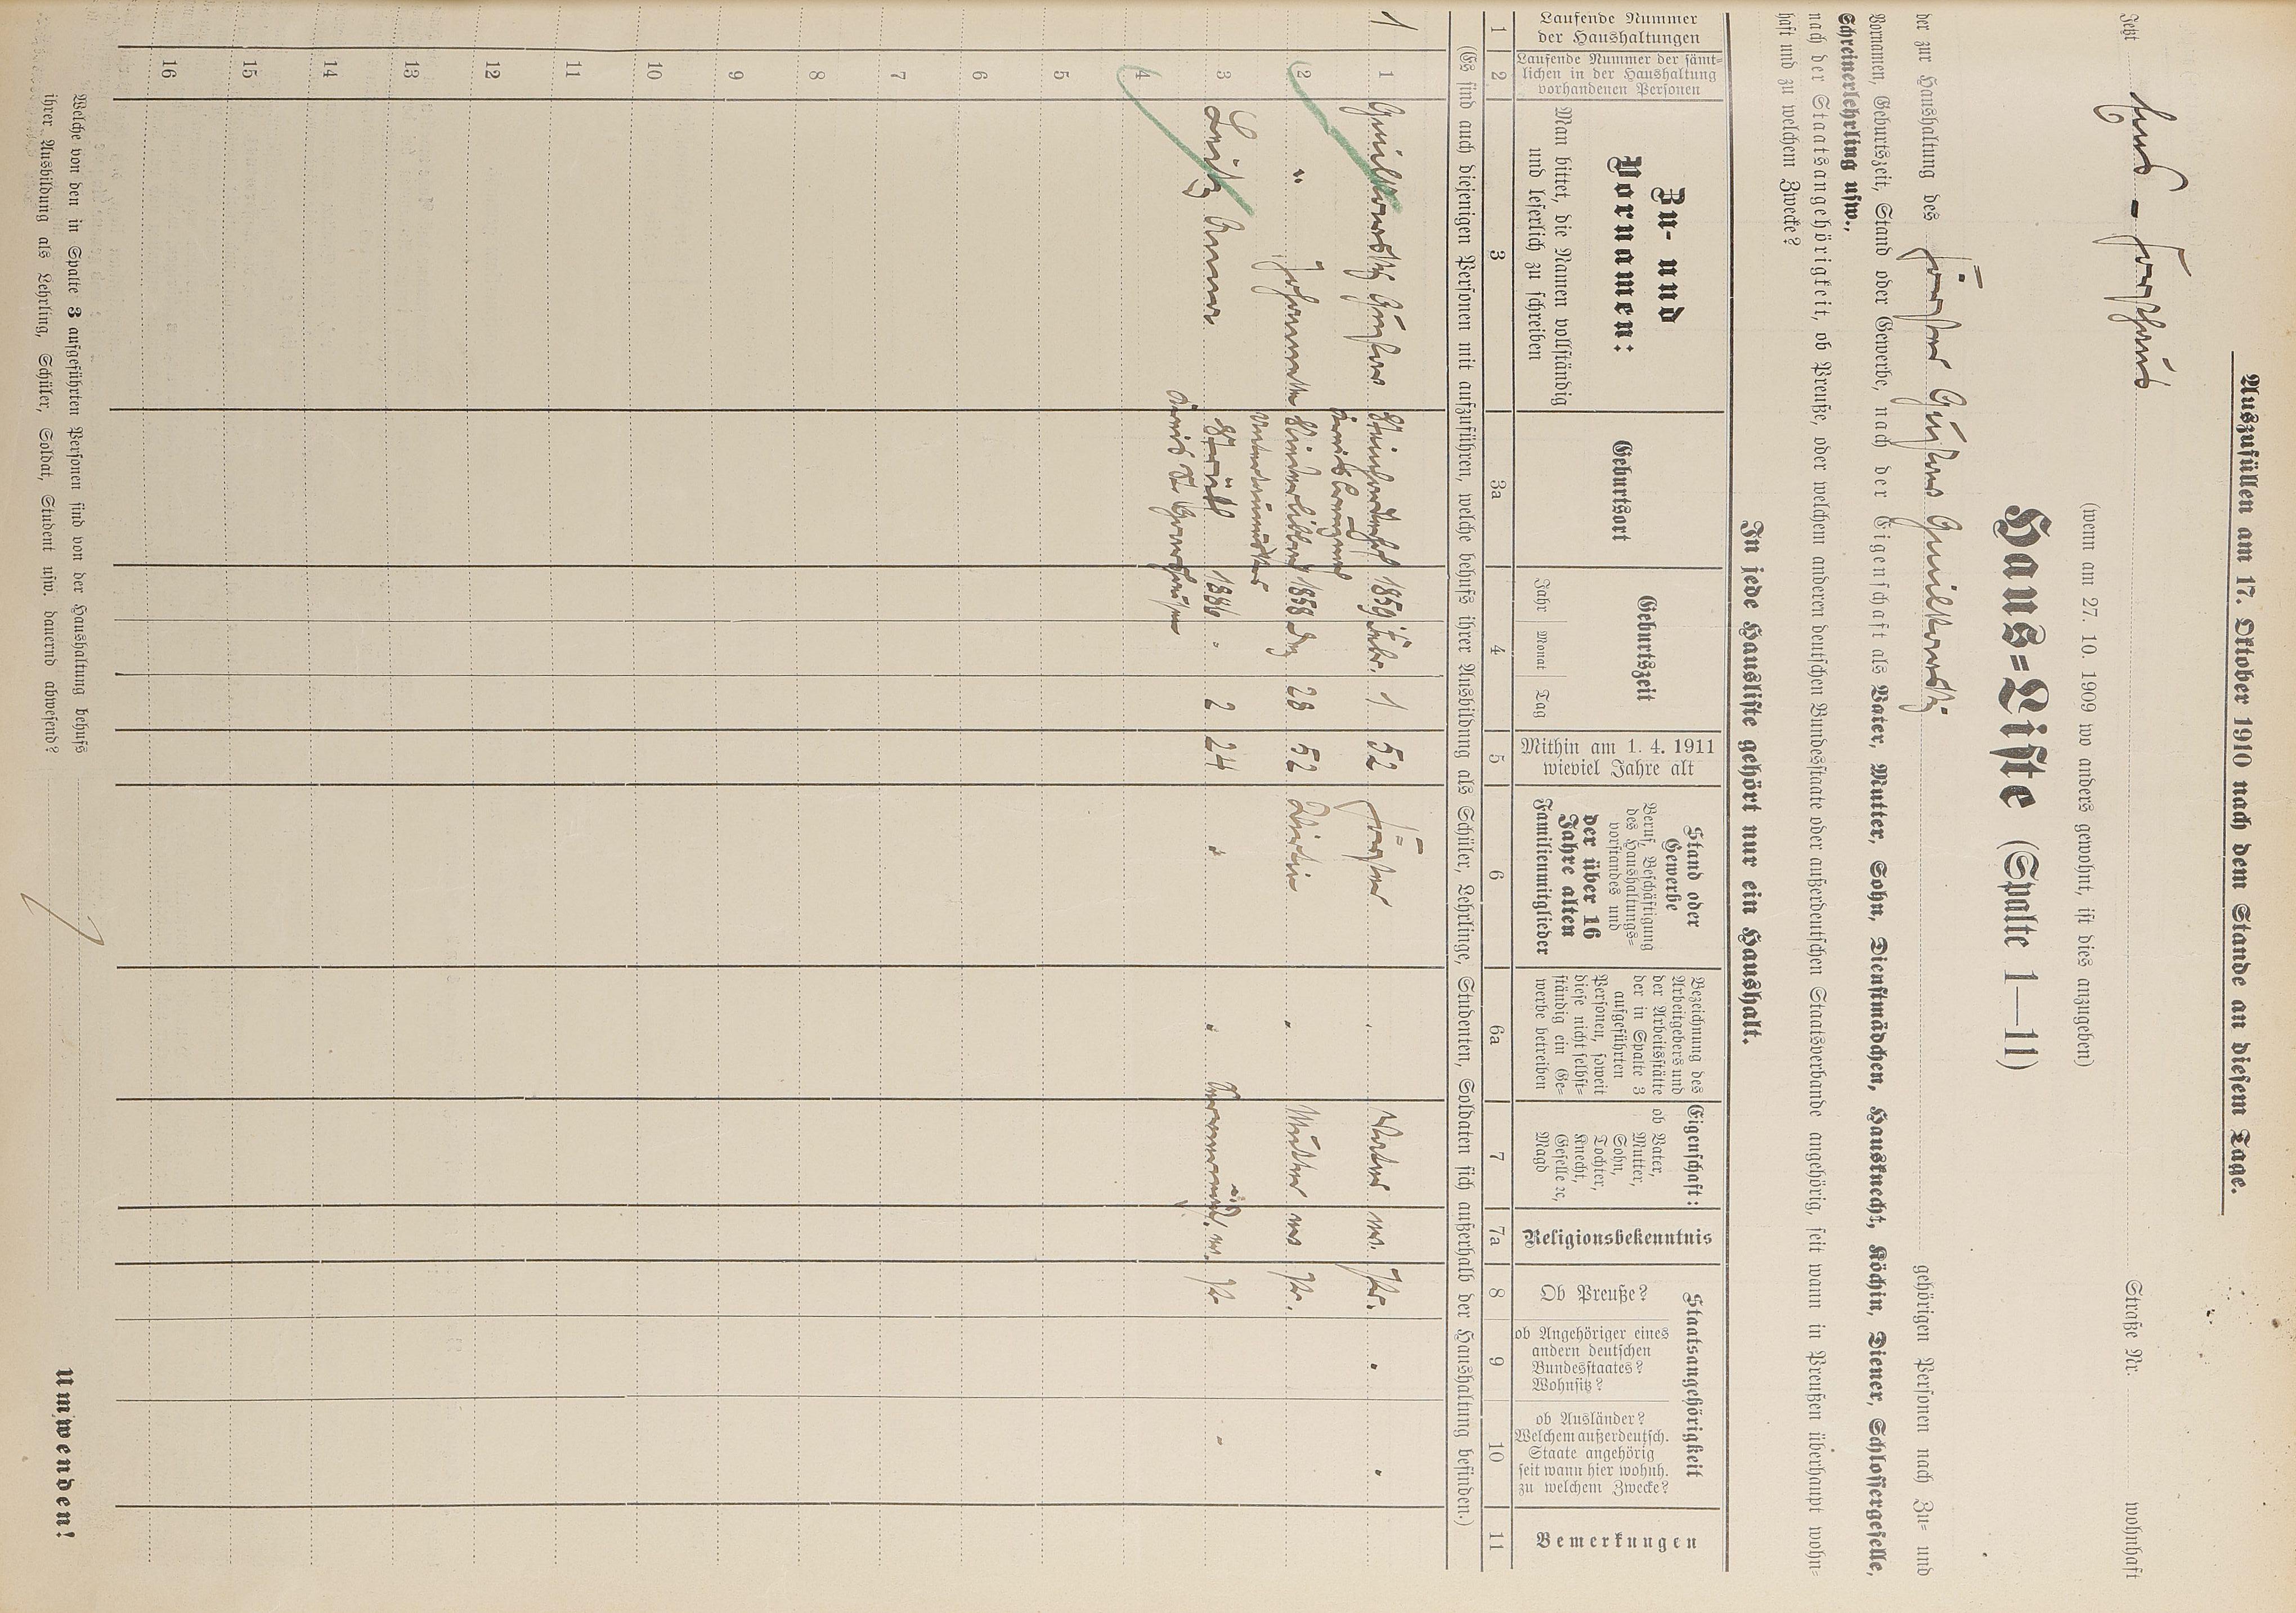 Auszufüllen am 17. Oktober 1910 nach dem Stande an diesem Tage.
Jetzt Forsthaus Straße Nr. wohnhaft
(wenn am 27. 10. 1909 wo anders gewohnt, ist dies anzugeben)
Haus=Liste (Spalte 1—11)
der zur Haushaltung des Förster Gustav gehörigen Personen nach Zu= und
Vornamen, Geburtszeit, Stand oder Gewerbe, nach der Eigenschaft als Vater, Mutter, Sohn, Dienstmädchen, Hausknecht, Köchin, Diener, Schlossergeselle,
Schreinerlehrling usw.,
nach der Staatsangehörigkeit, ob Preuße, oder welchem anderen deutschen Bundesstaate oder außerdeutschen Staatsverbande angehörig, seit wann in Preußen überhaupt wohn=
haft und zu welchem Zwecke?
In jede Hausliste gehört nur ein Haushalt.
Laufende Nummer der Haushaltungen
Laufende Nummer der sämt=lichen in der Haushaltung vorhandenen Personen
Zu- und Vornamen:
Man bittet, die Namen vollständig und leserlich zu schreiben
Geburtsort
Geburtszeit
Jahr Monat Tag
Mithin am 1. 4. 1911 wieviel Jahre alt
Stand oder Gewerbe
Beruf, Beschäftigung des Haushaltungs=vorstandes und
der über 16 Jahre alten Familienmitglieder
Bezeichnung des Arbeitgebers und der Arbeitsstätte der in Spalte 3 aufgeführten Personen, soweit diese nicht selbst=ständig ein Ge=werbe betreiben
Eigenschaft:
ob Vater, Mutter, Sohn, Tochter, Knecht, Geselle ꝛc, Magd
Religionsbekenntnis
Staatsangehörigkeit
Ob Preuße?
ob Angehöriger eines andern deutschen Bundesstaates? Wohnsitz?
ob Ausländer? Welchem außerdeutsch. Staate angehörig seit wann hier wohnh. zu welchem Zwecke?
Bemerkungen
1 2 3 3a 4 5 6 6a 7 7a 8 9 10 11
(Es sind auch diejenigen Personen mit aufzuführen, welche behufs ihrer Ausbildung als Schüler, Lehrlinge, Studenten, Soldaten sich außerhalb der Haushaltung befinden.)
1 1 Gustav 1859 Febr. 1 52 Förster Vater ev. Pr.
2 " Johannette 1858 Dez 28 52 Mutter ev Pr.
3 Anna 1886 " 2 24 " " ev. Pr
4
5
6
7
8
9
10
11
12
13
14
15
16
Welche von den in Spalte 3 aufgeführten Personen sind von der Haushaltung behufs
ihrer Ausbildung als Lehrling, Schüler, Soldat, Student usw. dauernd abwesend?
Umwenden!